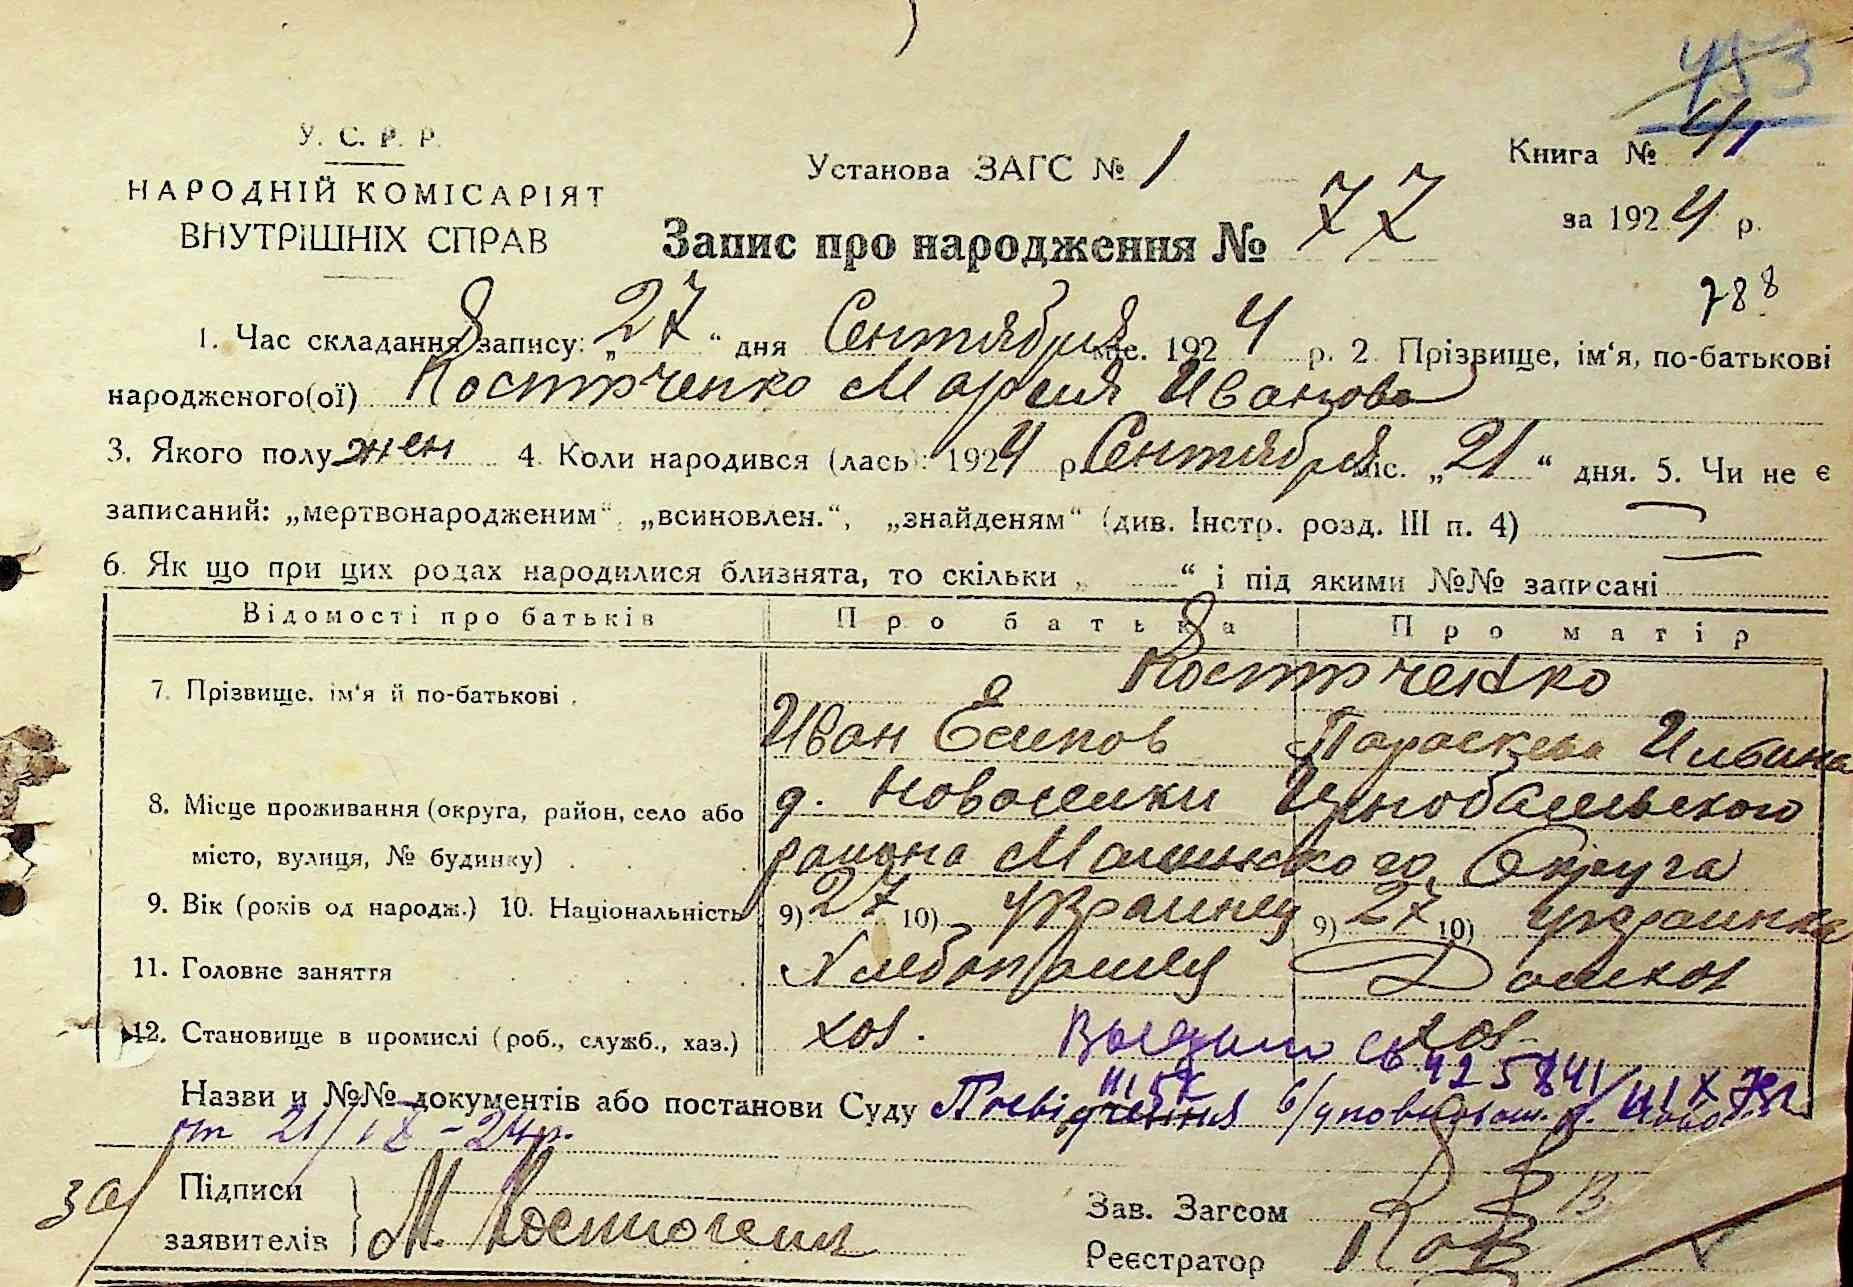 453
У. С. Р. Р.
НАРОДНІЙ КОМІСАРІЯТ
ВНУТРІШНІХ СПРАВ
Установа ЗАГС № 1
Книга № 41
за 1924 р.
Запис про народження № 77
788
1. Час складання запису: „27“ дня Сентября міс. 1924 р. 2. Прізвище, ім‘я, по-батькові
народженого(ої) Костюченко Мария Иванова
3. Якого полу жен 4. Коли народився (лась): 1924 р. Сентября міс. „21“ дня. 5. Чи не є
записаний: „мертвонародженим“, „всиновлен.“, „знайденям“ (див. Інстр. розд. III п. 4)
6. Як що при цих родах народилися близнята, то скільки „ “ і під якими №№ записані
Відомості про батьків Про батька Про матір
7. Прізвище, ім‘я й по-батькові Костюченко
Иван Есипов Параскева Ильина
8. Місце проживання (округа, район, село або д. Новоселки
місто, вулиця, № будинку) района Округа
9. Вік (років од народж.) 10. Національність 9) 27 10) украинец 9) 27 10) украинка
11. Головне заняття Хлебопашец Домхоз
12. Становище в промислі (роб., служб., хаз.) хоз. хоз.
Выдано св 425841
Назви и №№ документів або постанови Суду Посвідчення
от 21/IX-24р.
за/
Підписи
заявителів М. Костюченк
Зав. Загсом
Реєстратор